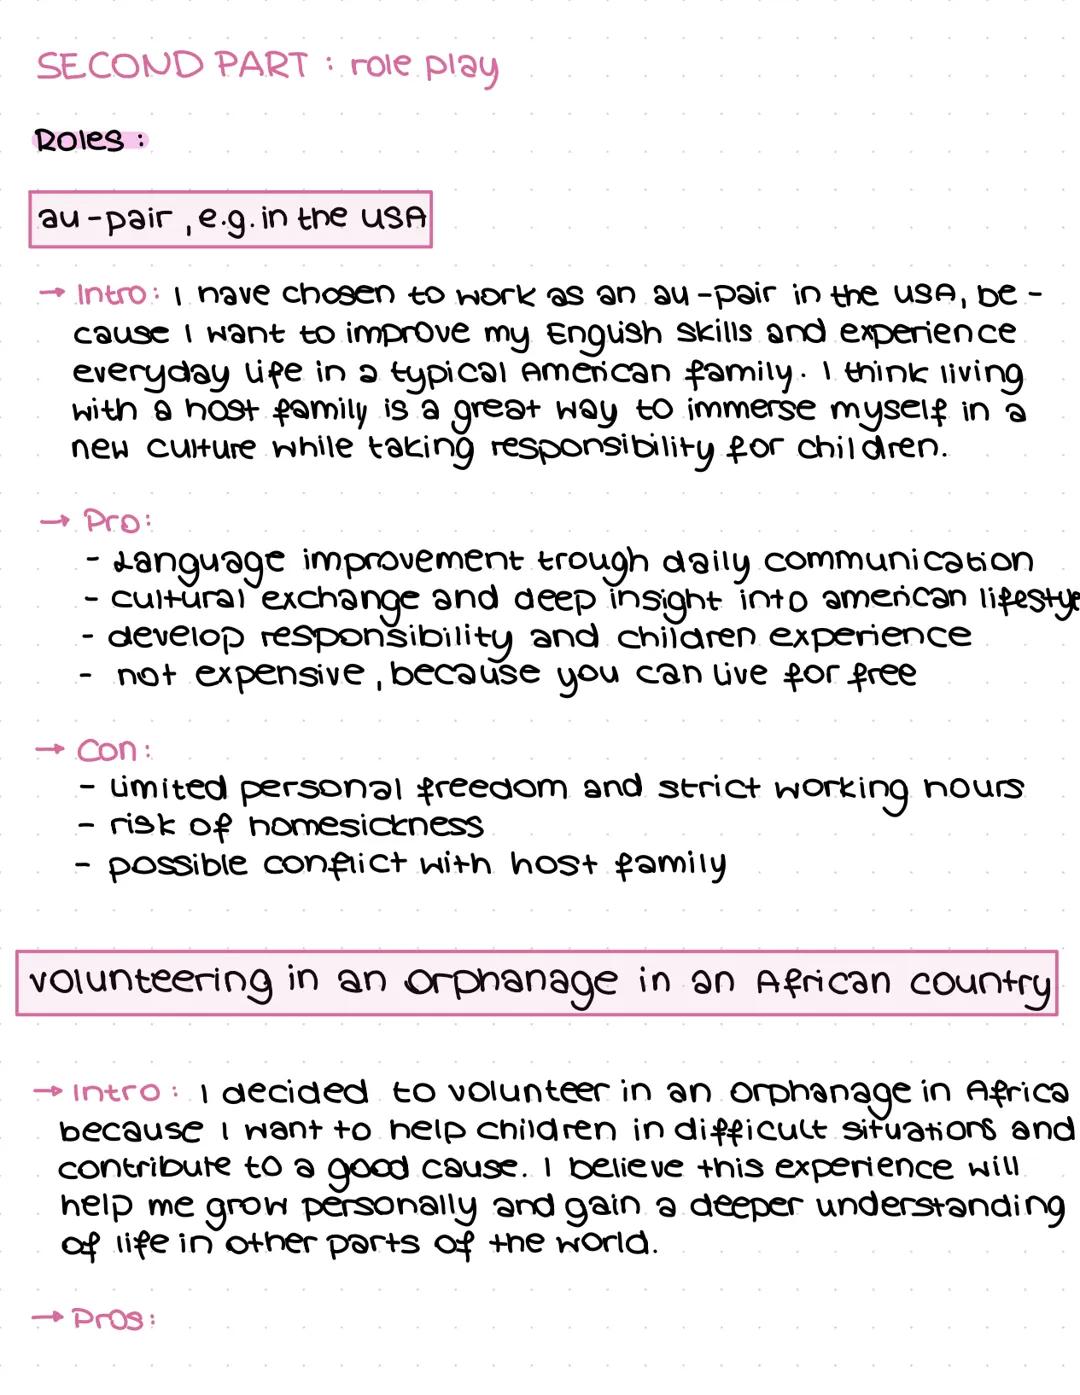 SECOND PART : role play
Roles :
au-pair, e.g. in the USA
→ Intro: I have chosen to work as an au-pair in the USA, be-
cause I want to improve my English skills and experience
everyday life in a typical American family. I think living
with a host family is a great way to immerse myself in a
new culture while taking responsibility for children.
→ Pro:
- Language improvement trough daily communication
- cultural exchange and deep insight into american lifestye
- develop responsibility and children experience
- not expensive, because you can live for free
→ Con:
- limited personal freedom and strict working hours
- risk of homesickness
- possible conflict with host family
volunteering in an orphanage in an African country
→ Intro: I decided to volunteer in an orphanage in Africa
because I want to help children in difficult situations and
contribute to a good cause. I believe this experience will
help me grow personally and gain a deeper understanding
of life in other parts of the world.
→ Pros: